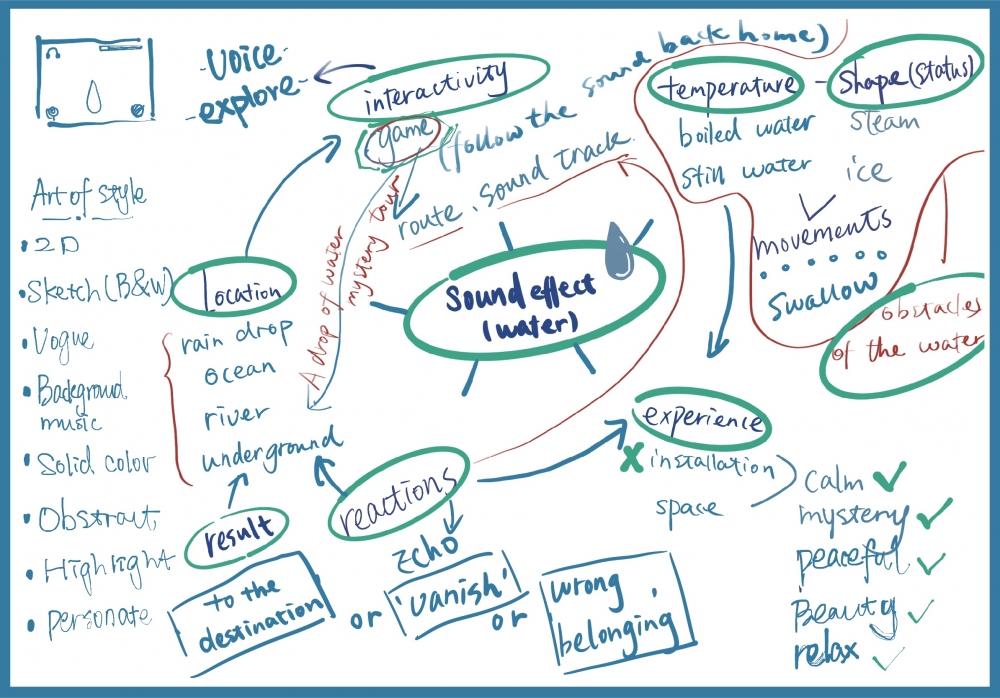 -voice-
-explore-
interactivity
game
(follow the sound back home)
route, sound track.
temperature - Shape(Status)
boiled water
still water
steam
ice
movements
swallow
obstacles
of the water
Art of style
• 2D
• Sketch(B&W)
• Vogue
• Background
music
• Solid color
• Obstract
• Highlight
• personate
Location
rain drop
ocean
river
underground
A drop of water
mystery tour
Sound effect
(water)
experience
X installation
space
calm ✓
mystery ✓
peaceful ✓
Beauty ✓
relax ✓
result
reactions
Echo
to the
destination
or
'vanish'
or
wrong
belonging'